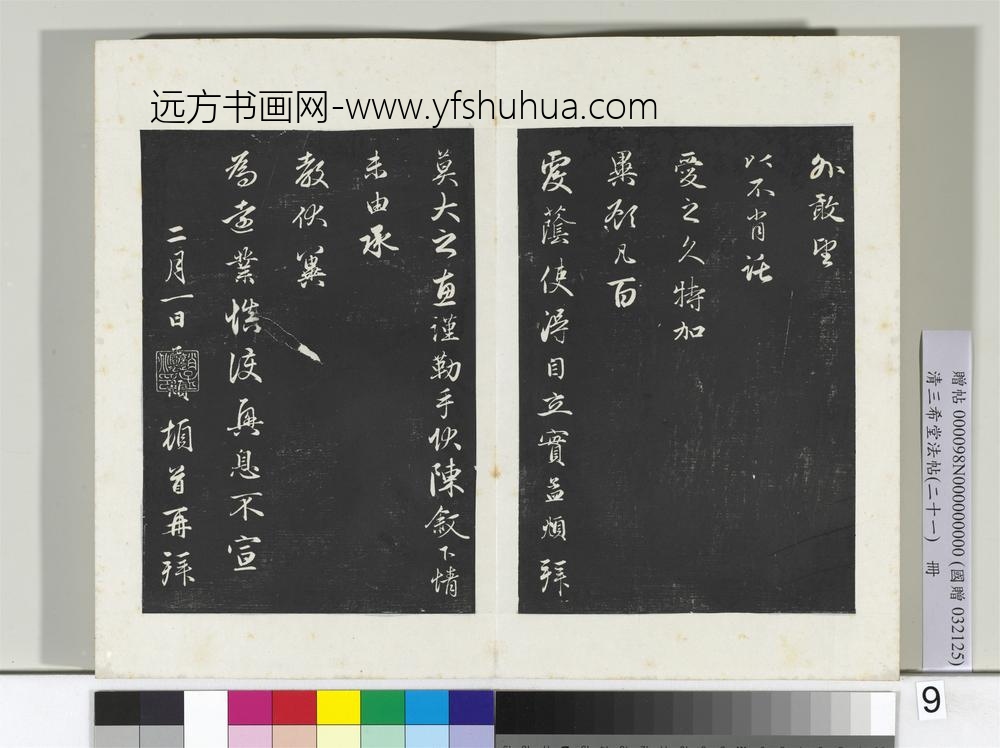 远方书画网-www.yfshuhua.com
外敢望
以不肖託
愛之久特加
畢顧凡百
覆蔭使得自立實益煩拜
莫大之惠謹勒手伏陳敘下情
未由承
教伏冀
為遠業慎護興息不宣
二月一日 頓首再拜
贈帖 000098N000000000 (國贈 032125)
清三希堂法帖(二十一) 冊
9